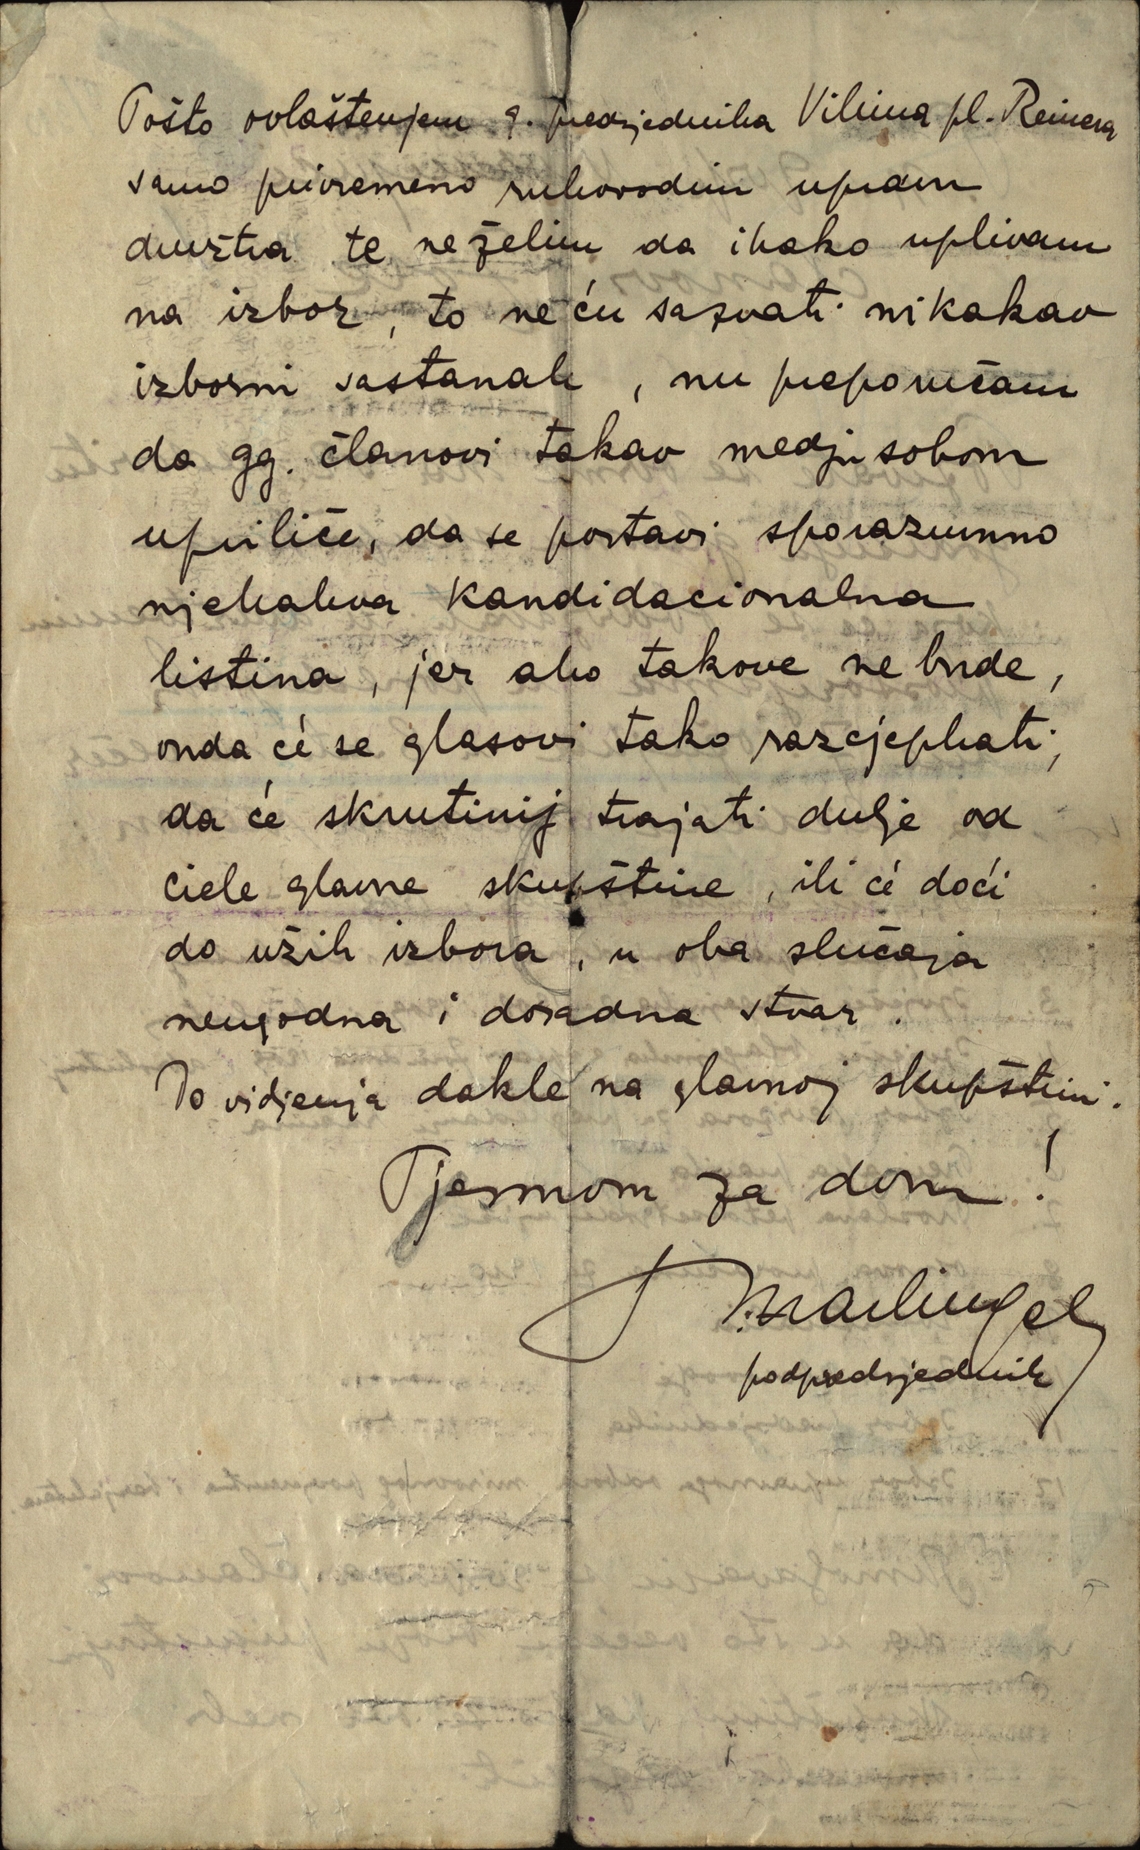 Pošto ovlaštenjem g. predsjednika Vilima pl. Reinera
samo privremeno rukovodim upravu
družtva te neželim da ikako uplivam
na izbor, to neću sazvati nikakav
izborni sastanak, nu preporučam
da gg. članovi takav medju sobom
upriliče, da se postavi sporazumno
njekakva kandidacionalna
listina, jer ako takove ne bude,
onda će se glasovi tako razcjepkati,
da će skrutinij trajati dulje od
ciele glavne skupštine, ili će doći
do užih izbora, u oba slučaja
neugodna i dosadna stvar.
Do vidjenja dakle na glavnoj skupštini.
Pjesmom za dom!
podpredsjednik